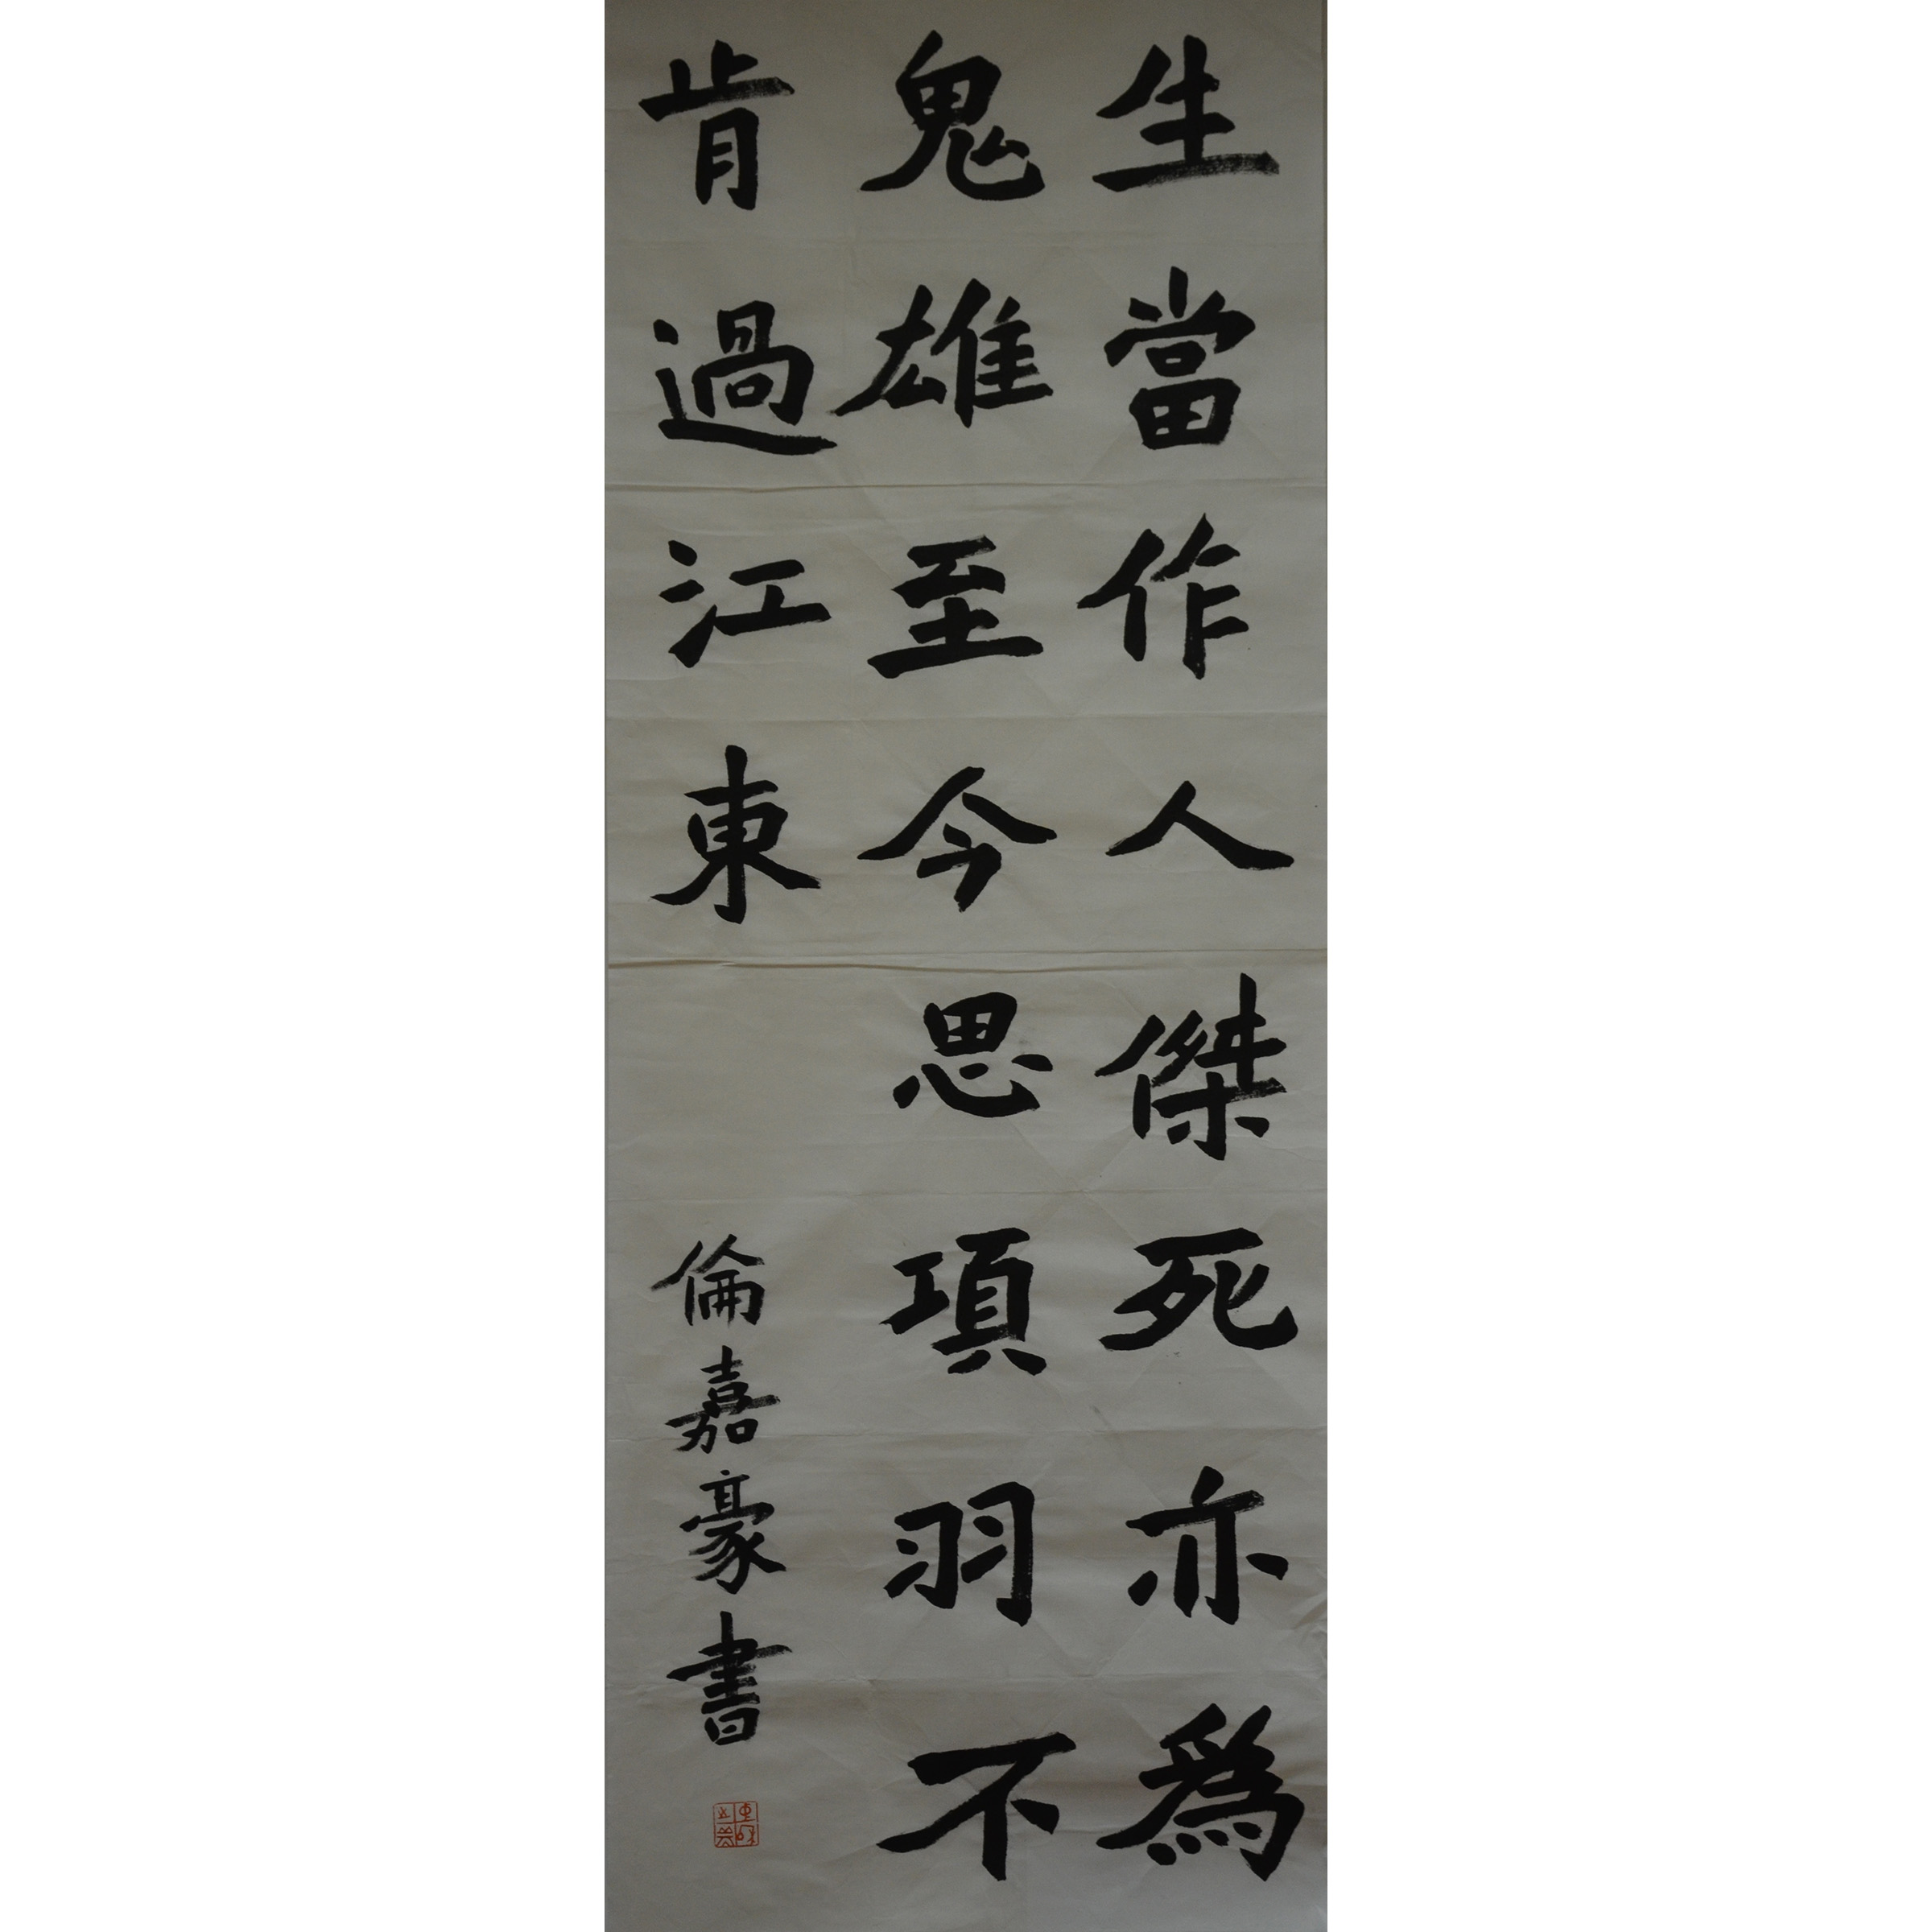 生當作人傑死亦為
鬼雄至今思項羽不
肯過江東
倫嘉豪書